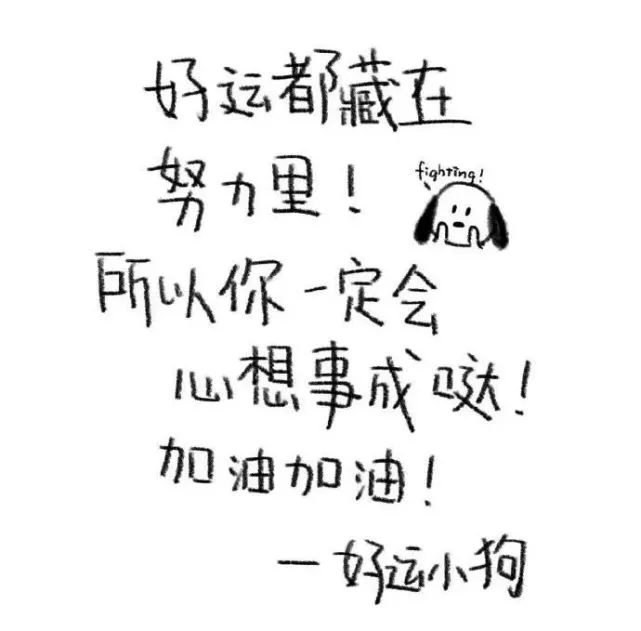 好运都藏在
努力里！
fighting!
所以你一定会
心想事成哒！
加油加油！
—好运小狗